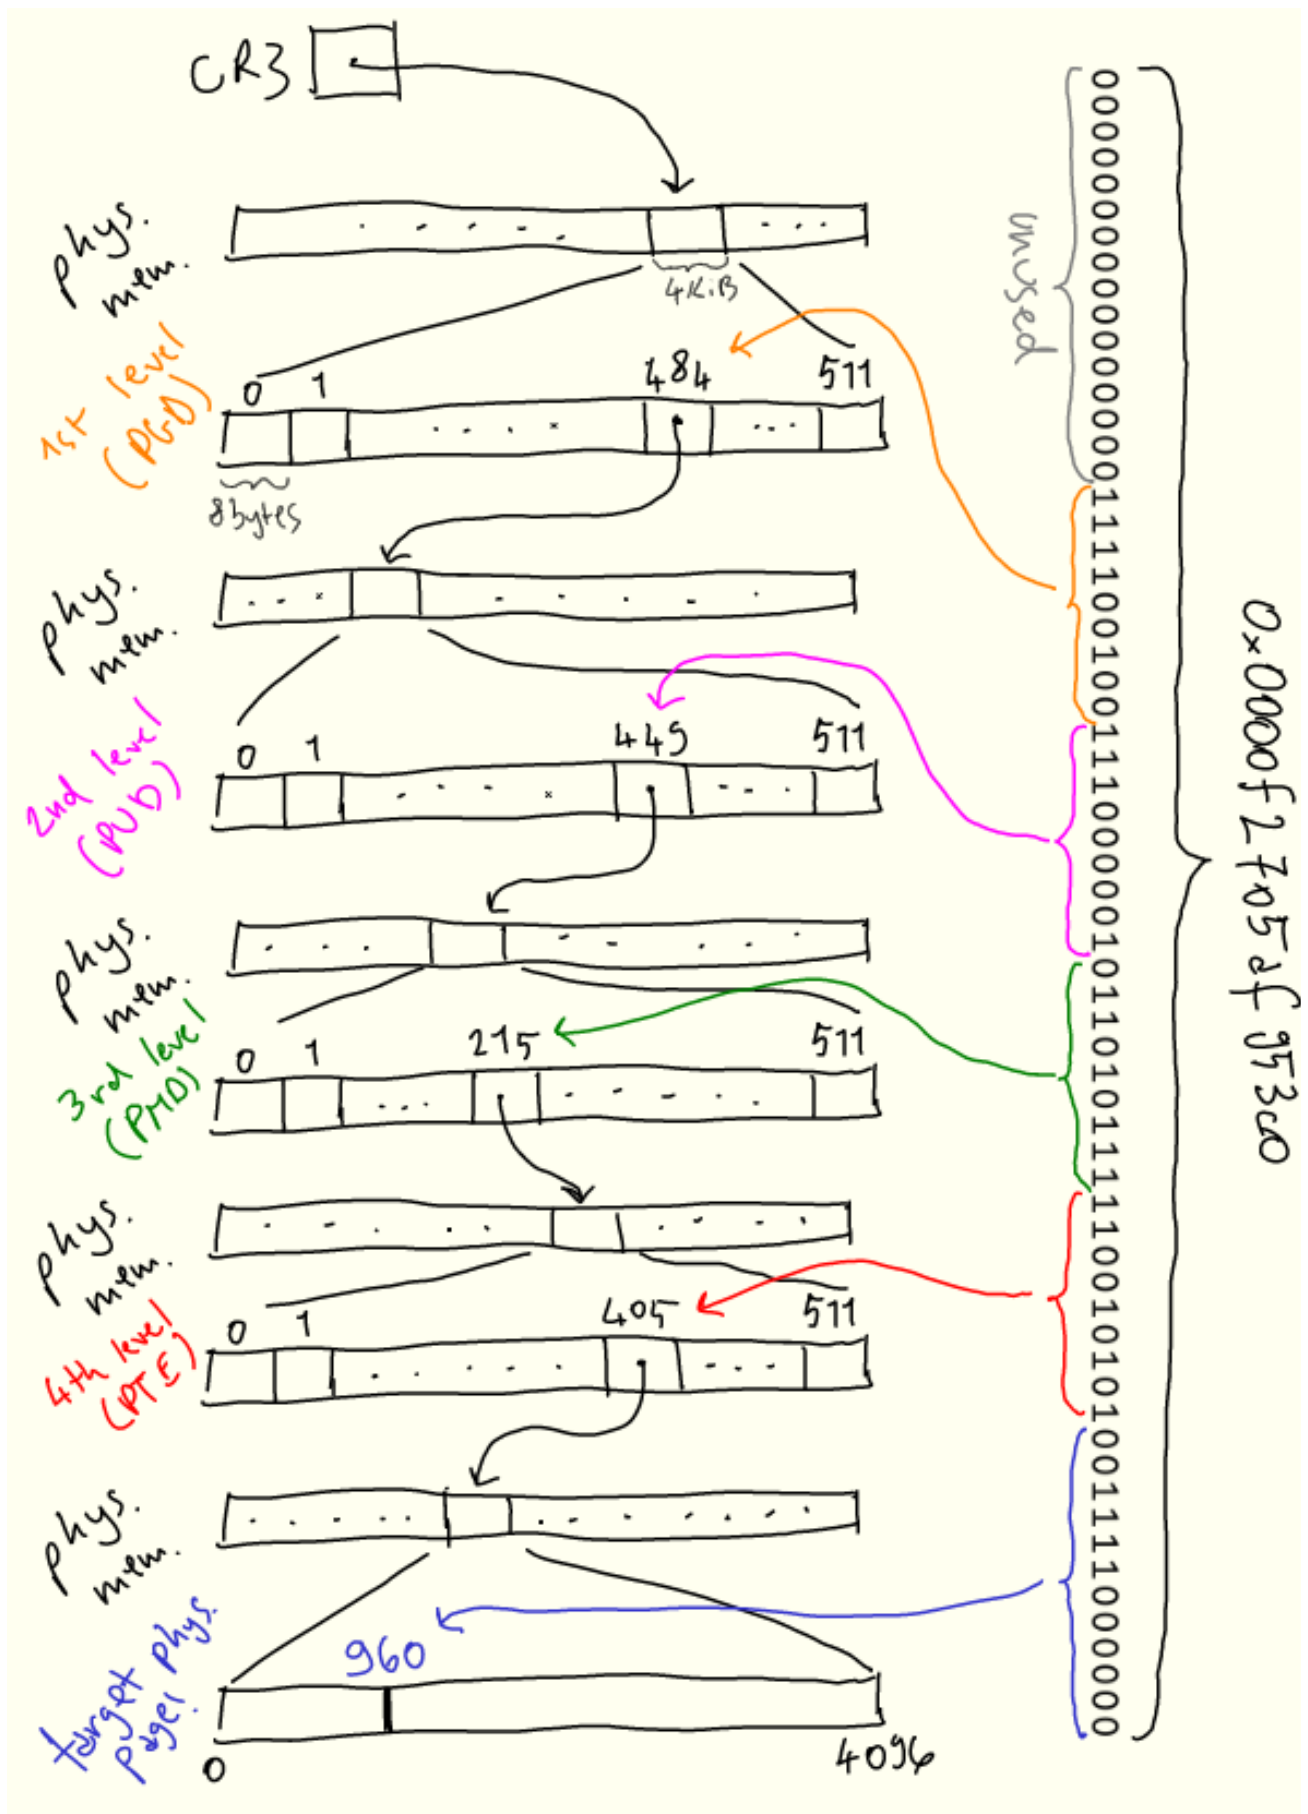 CR3
phys.
mem.
4KiB
1st level
(PGD)
0 1 484 511
8bytes
phys.
mem.
2nd level
(PUD)
0 1 449 511
phys.
mem.
3rd level
(PMD)
0 1 215 511
phys.
mem.
4th level
(PTE)
0 1 405 511
phys.
mem.
target phys.
page!
960
0 4096
unused
0000000000000000111100100111000001011010111110010101001111000000
0x0000f2705af953c0